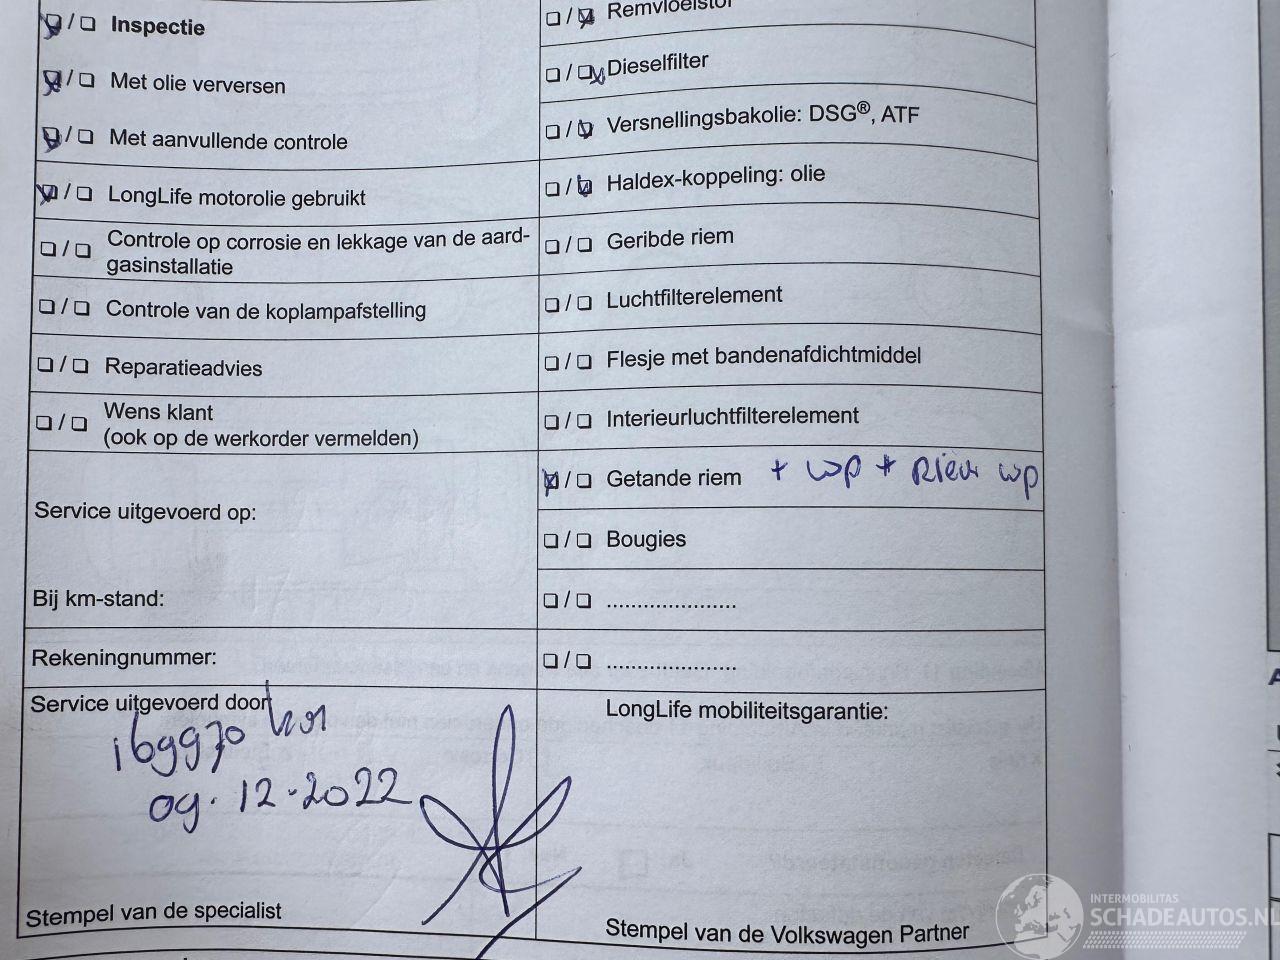 Inspectie
Met olie verversen
Met aanvullende controle
LongLife motorolie gebruikt
Controle op corrosie en lekkage van de aard-
gasinstallatie
Controle van de koplampafstelling
Reparatieadvies
Wens klant
(ook op de werkorder vermelden)
Service uitgevoerd op:
Bij km-stand:
Rekeningnummer:
Service uitgevoerd door
169970 km
09.12.2022
Stempel van de specialist
Remvloeistof
Dieselfilter
Versnellingsbakolie: DSG®, ATF
Haldex-koppeling: olie
Geribde riem
Luchtfilterelement
Flesje met bandenafdichtmiddel
Interieurluchtfilterelement
Getande riem + wp + Riem wp
Bougies
.....................
.....................
LongLife mobiliteitsgarantie:
Stempel van de Volkswagen Partner
INTERMOBILITAS
SCHADEAUTOS.NL